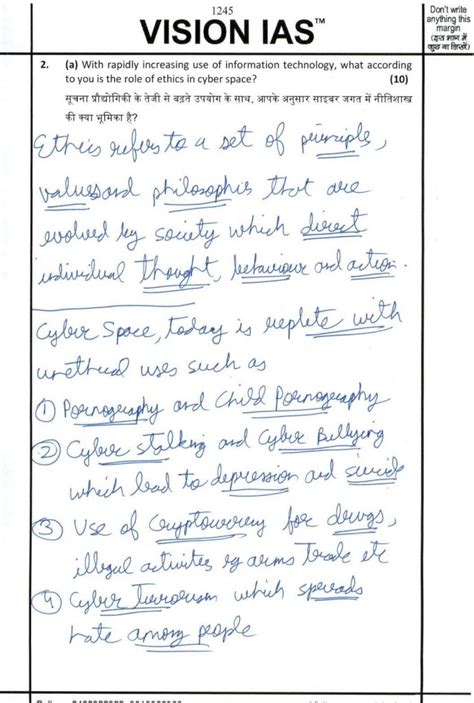 1245
VISION IAS™
Don't write
anything this
margin
(इस भाग में
कुछ ना लिखें)
2. (a) With rapidly increasing use of information technology, what according
to you is the role of ethics in cyber space? (10)
सूचना प्रौद्योगिकी के तेजी से बढ़ते उपयोग के साथ, आपके अनुसार साइबर जगत में नीतिशास्त्र
की क्या भूमिका है?
Ethics refers to a set of principle,
values and philosophies that are
evolved by society which direct
individual thought, behaviour and action.
Cyber Space, today is replete with
unethical uses such as
① Pornography and Child Pornography
② Cyber stalking and Cyber Bullying
which lead to depression and suicide
③ Use of Cryptocurrency for drugs,
illegal activities eg arms trade etc
④ Cyber Terrorism which spreads
hate among people